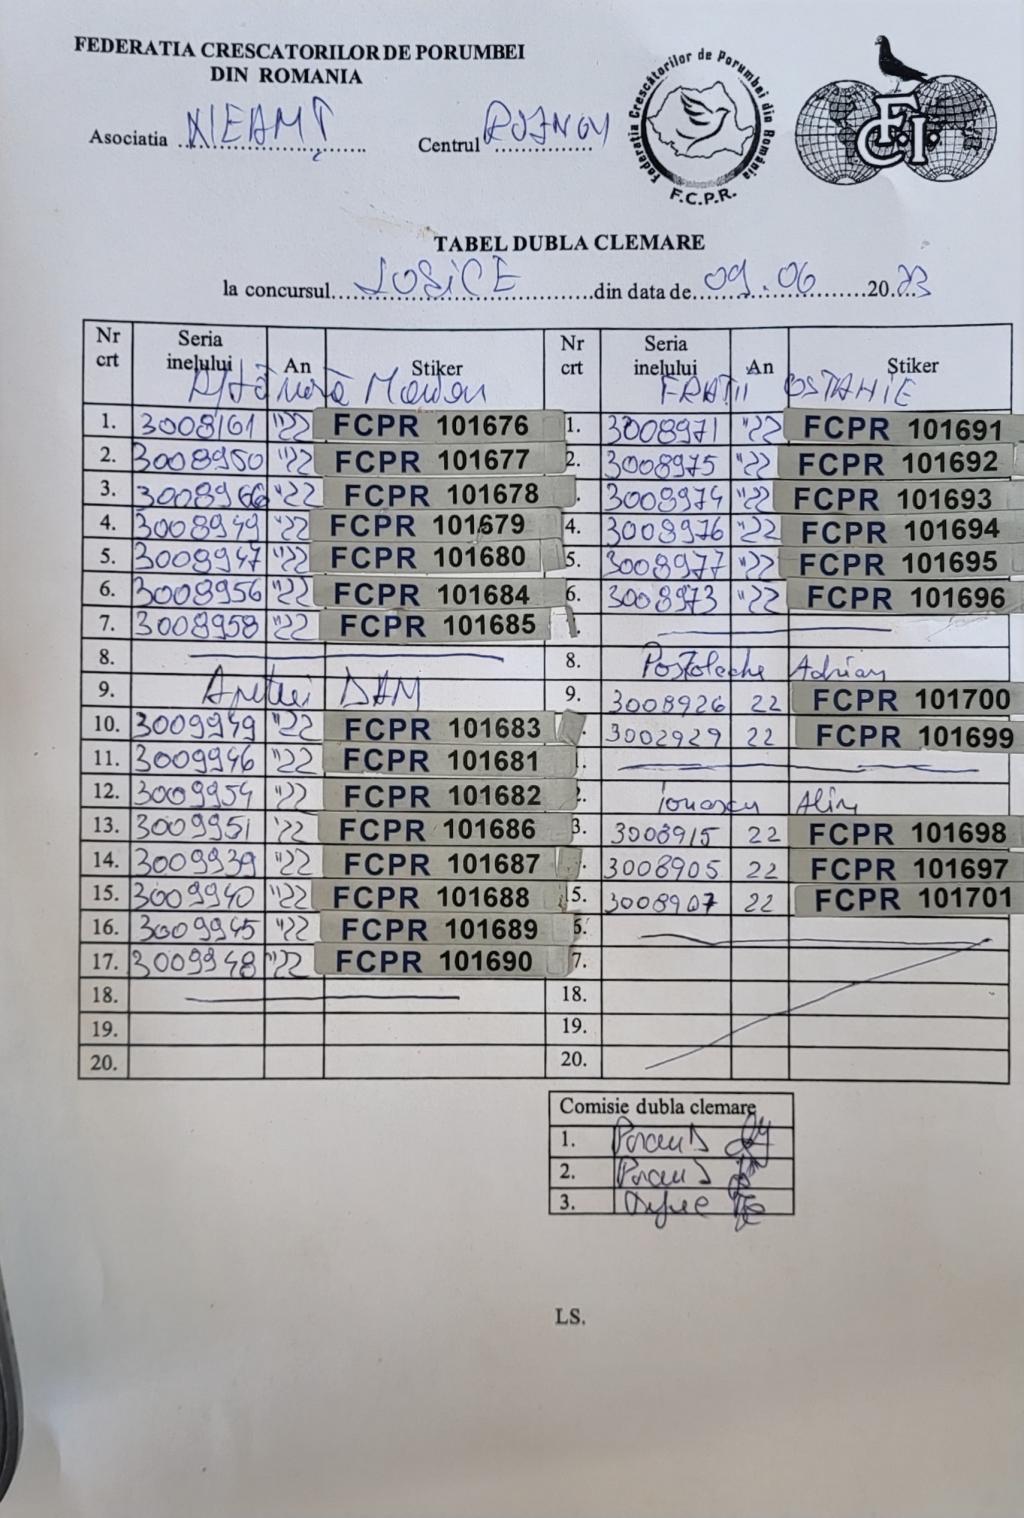 FEDERATIA CRESCATORILOR DE PORUMBEI
DIN ROMANIA
Asociatia NEAMȚ Centrul ROZNOV
Federatia Crescătorilor de Porumbei din România
F.C.P.R.
F.C.I.
TABEL DUBLA CLEMARE
la concursul LOSICE din data de 09.06 2023
Nr crt Seria inelului An Ștиker Nr crt Seria inelului An Știker
Marian FRAȚII OSTAHIE
1. 3008161 "22 FCPR 101676 1. 3008971 "22 FCPR 101691
2. 3008950 "22 FCPR 101677 2. 3008975 "22 FCPR 101692
3. 3008966 "22 FCPR 101678 3008974 "22 FCPR 101693
4. 3008949 "22 FCPR 101679 4. 3008976 "22 FCPR 101694
5. 3008947 "22 FCPR 101680 5. 3008977 "22 FCPR 101695
6. 3008956 "22 FCPR 101684 6. 3008973 "22 FCPR 101696
7. 3008958 "22 FCPR 101685
8. 8. Postolache Adrian
9. DAM 9. 3008926 22 FCPR 101700
10. 3009949 "22 FCPR 101683 3002929 22 FCPR 101699
11. 3009946 "22 FCPR 101681
12. 3009954 "22 FCPR 101682 2. Ionascu Alin
13. 3009951 "22 FCPR 101686 3. 3008915 22 FCPR 101698
14. 3009939 "22 FCPR 101687 3008905 22 FCPR 101697
15. 3009940 "22 FCPR 101688 15. 3008907 22 FCPR 101701
16. 3009945 "22 FCPR 101689 6.
17. 3009948 "22 FCPR 101690 7.
18. 18.
19. 19.
20. 20.
Comisie dubla clemare
1.
2.
3.
LS.